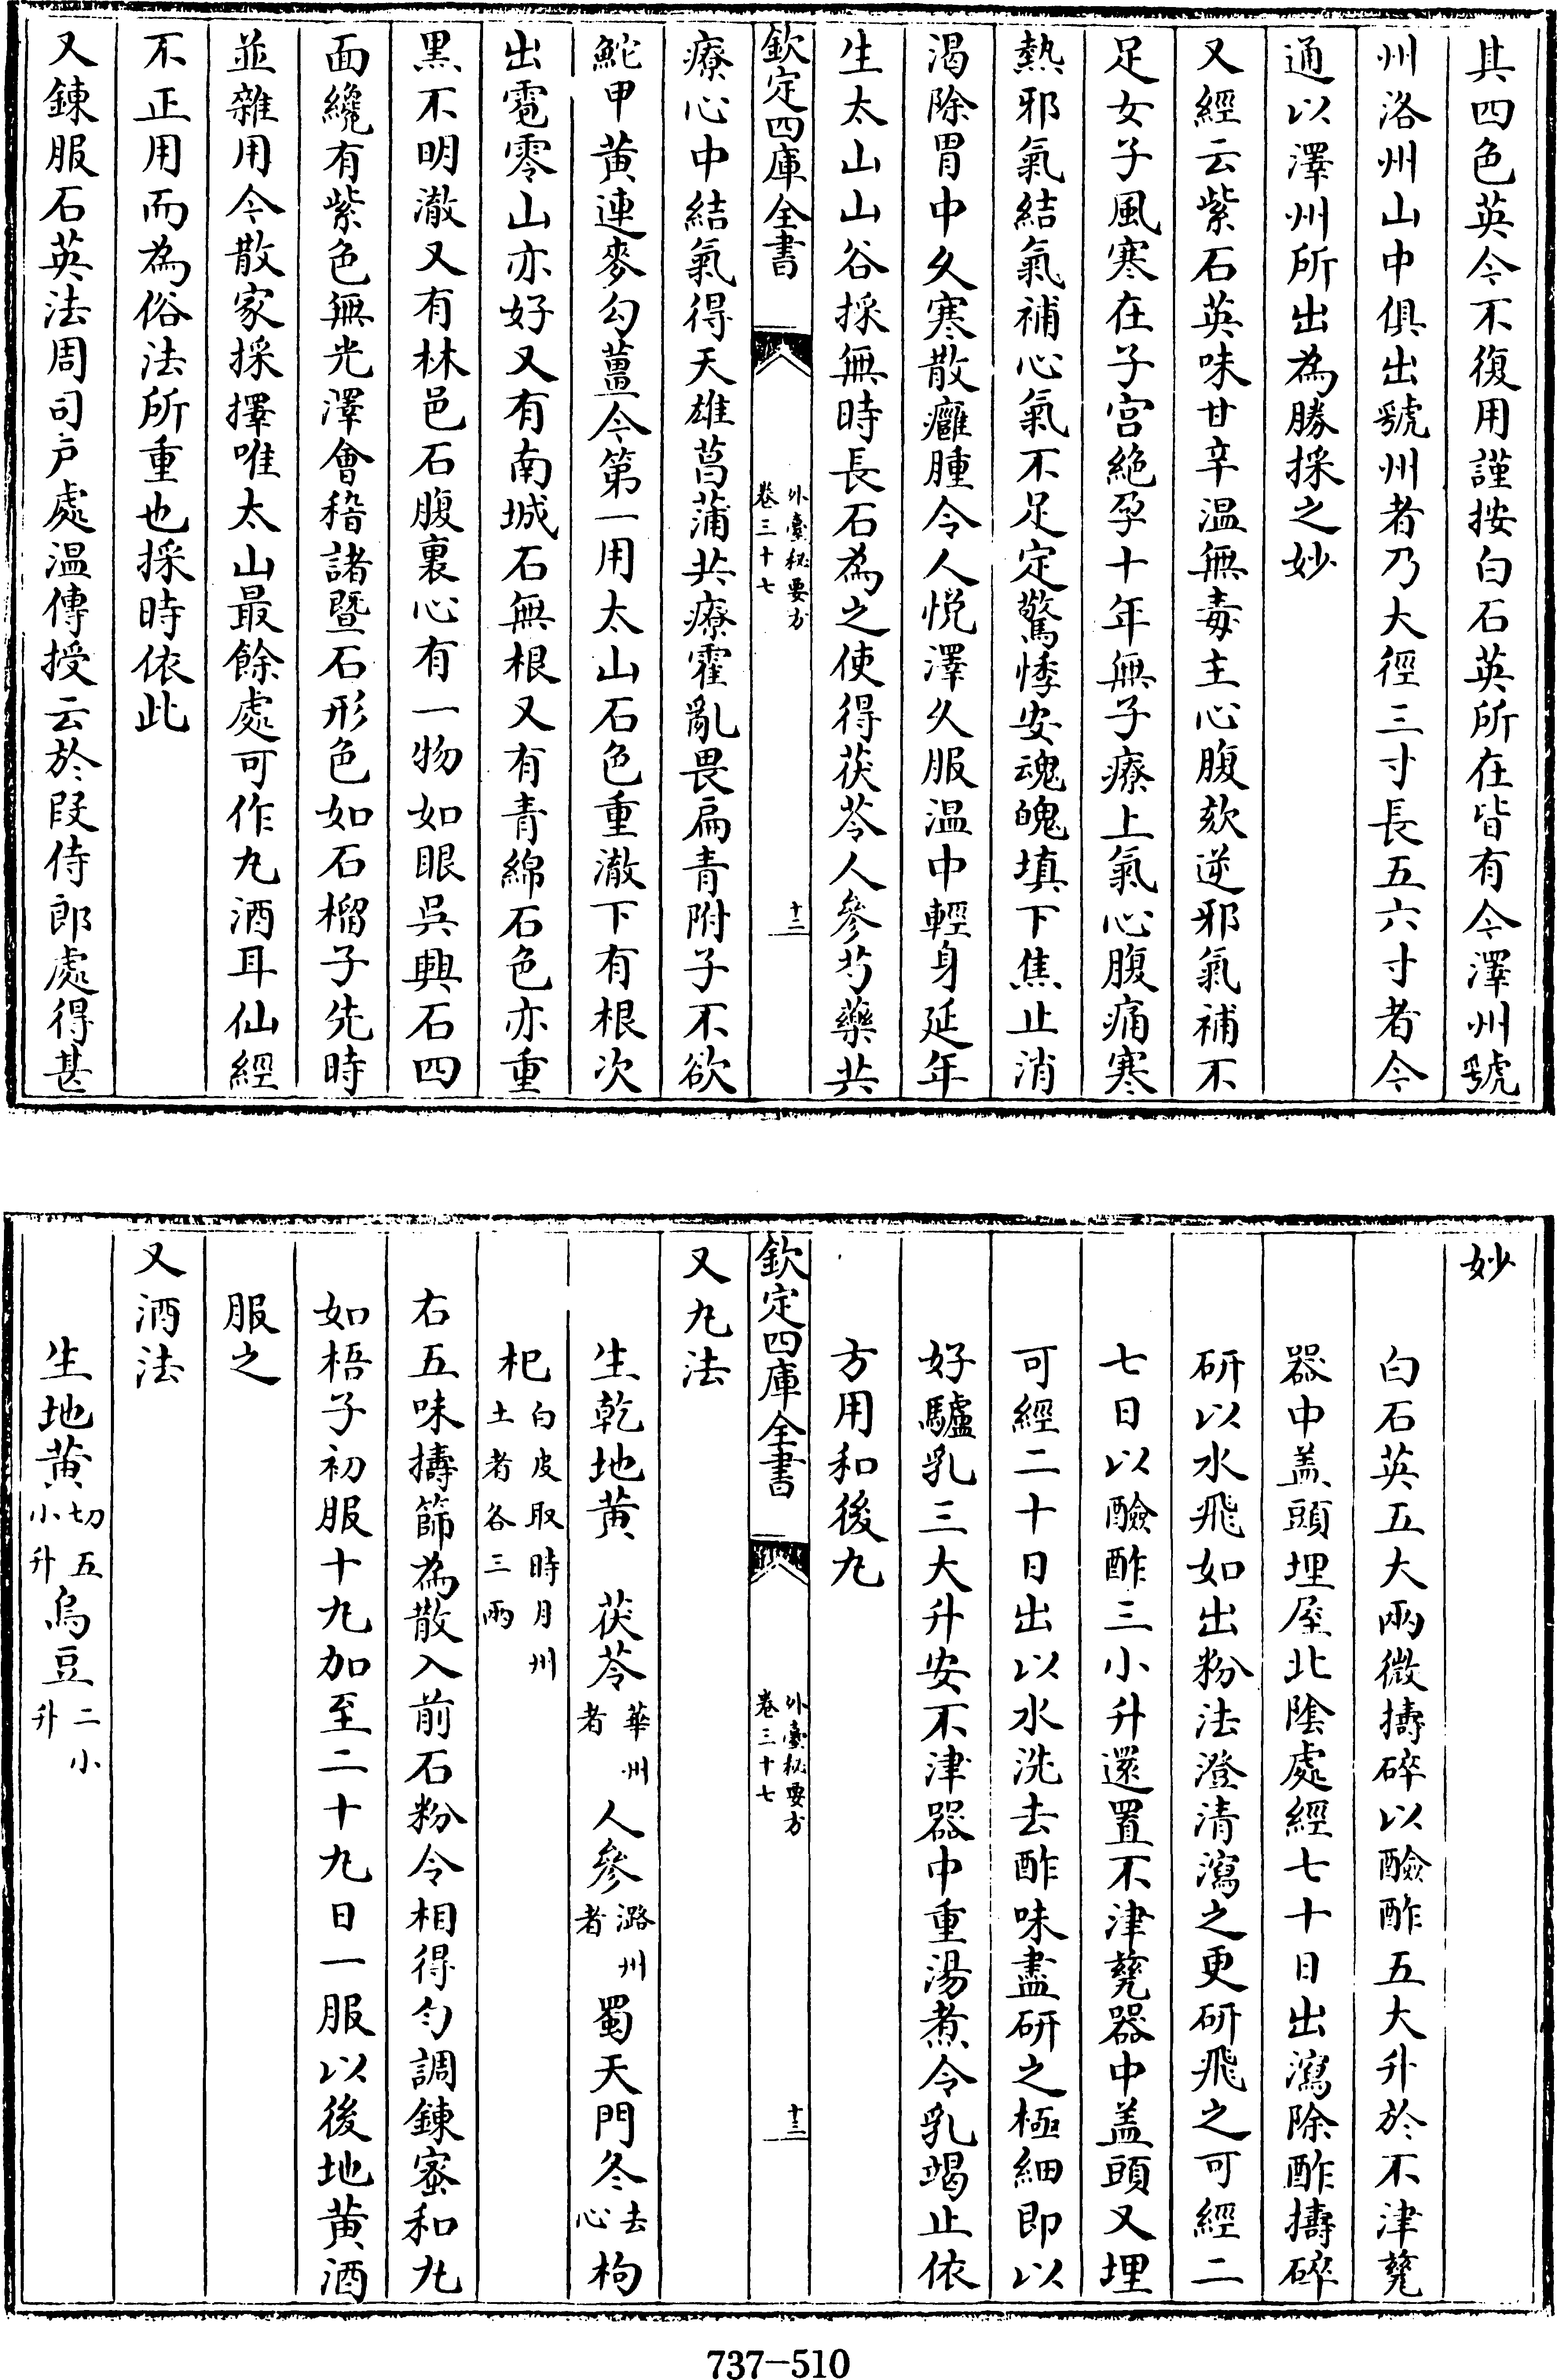 其四色英今不復用謹按白石英所在皆有今澤州虢
州洛州山中俱出虢州者乃大徑三寸長五六寸者今
通以澤州所出為勝採之妙
又經云紫石英味甘辛温無毒主心腹欬逆邪氣補不
足女子風寒在子宫絶孕十年無子療上氣心腹痛寒
熱邪氣結氣補心氣不足定驚悸安魂魄填下焦止消
渴除胃中久寒散癰腫令人悦澤久服温中輕身延年
生太山山谷採無時長石為之使得茯苓人參芍藥共
欽定四庫全書
外臺秘要方
卷三十七
十二
療心中結氣得天雄菖蒲共療霍亂畏扁青附子不欲
鮀甲黄連麥勾薑今第一用太山石色重澈下有根次
出雹零山亦好又有南城石無根又有青綿石色亦重
黑不明澈又有林邑石腹裏心有一物如眼吳興石四
面纔有紫色無光澤會稽諸暨石形色如石榴子先時
並雜用今散家採擇唯太山最餘處可作九酒耳仙經
不正用而為俗法所重也採時依此
又鍊服石英法周司户處温傳授云於叚侍郎處得甚
妙
白石英五大兩微擣碎以醶酢五大升於不津甕
器中盖頭埋屋北隂處經七十日出瀉除酢擣碎
研以水飛如出粉法澄清瀉之更研飛之可經二
七日以醶酢三小升還置不津甕器中盖頭又埋
可經二十日出以水洗去酢味盡研之極細即以
好驢乳三大升安不津器中重湯煮令乳竭止依
方用和後九
欽定四庫全書
外臺秘要方
卷三十七
十三
又九法
生乾地黄 茯苓華州者 人參潞州者 蜀天門冬去心 枸
杞白皮取時月州土者各三兩
右五味擣篩為散入前石粉令相得匀調鍊蜜和九
如梧子初服十九加至二十九日一服以後地黄酒
服之
又酒法
生地黄切五小升 烏豆二小升
737-510